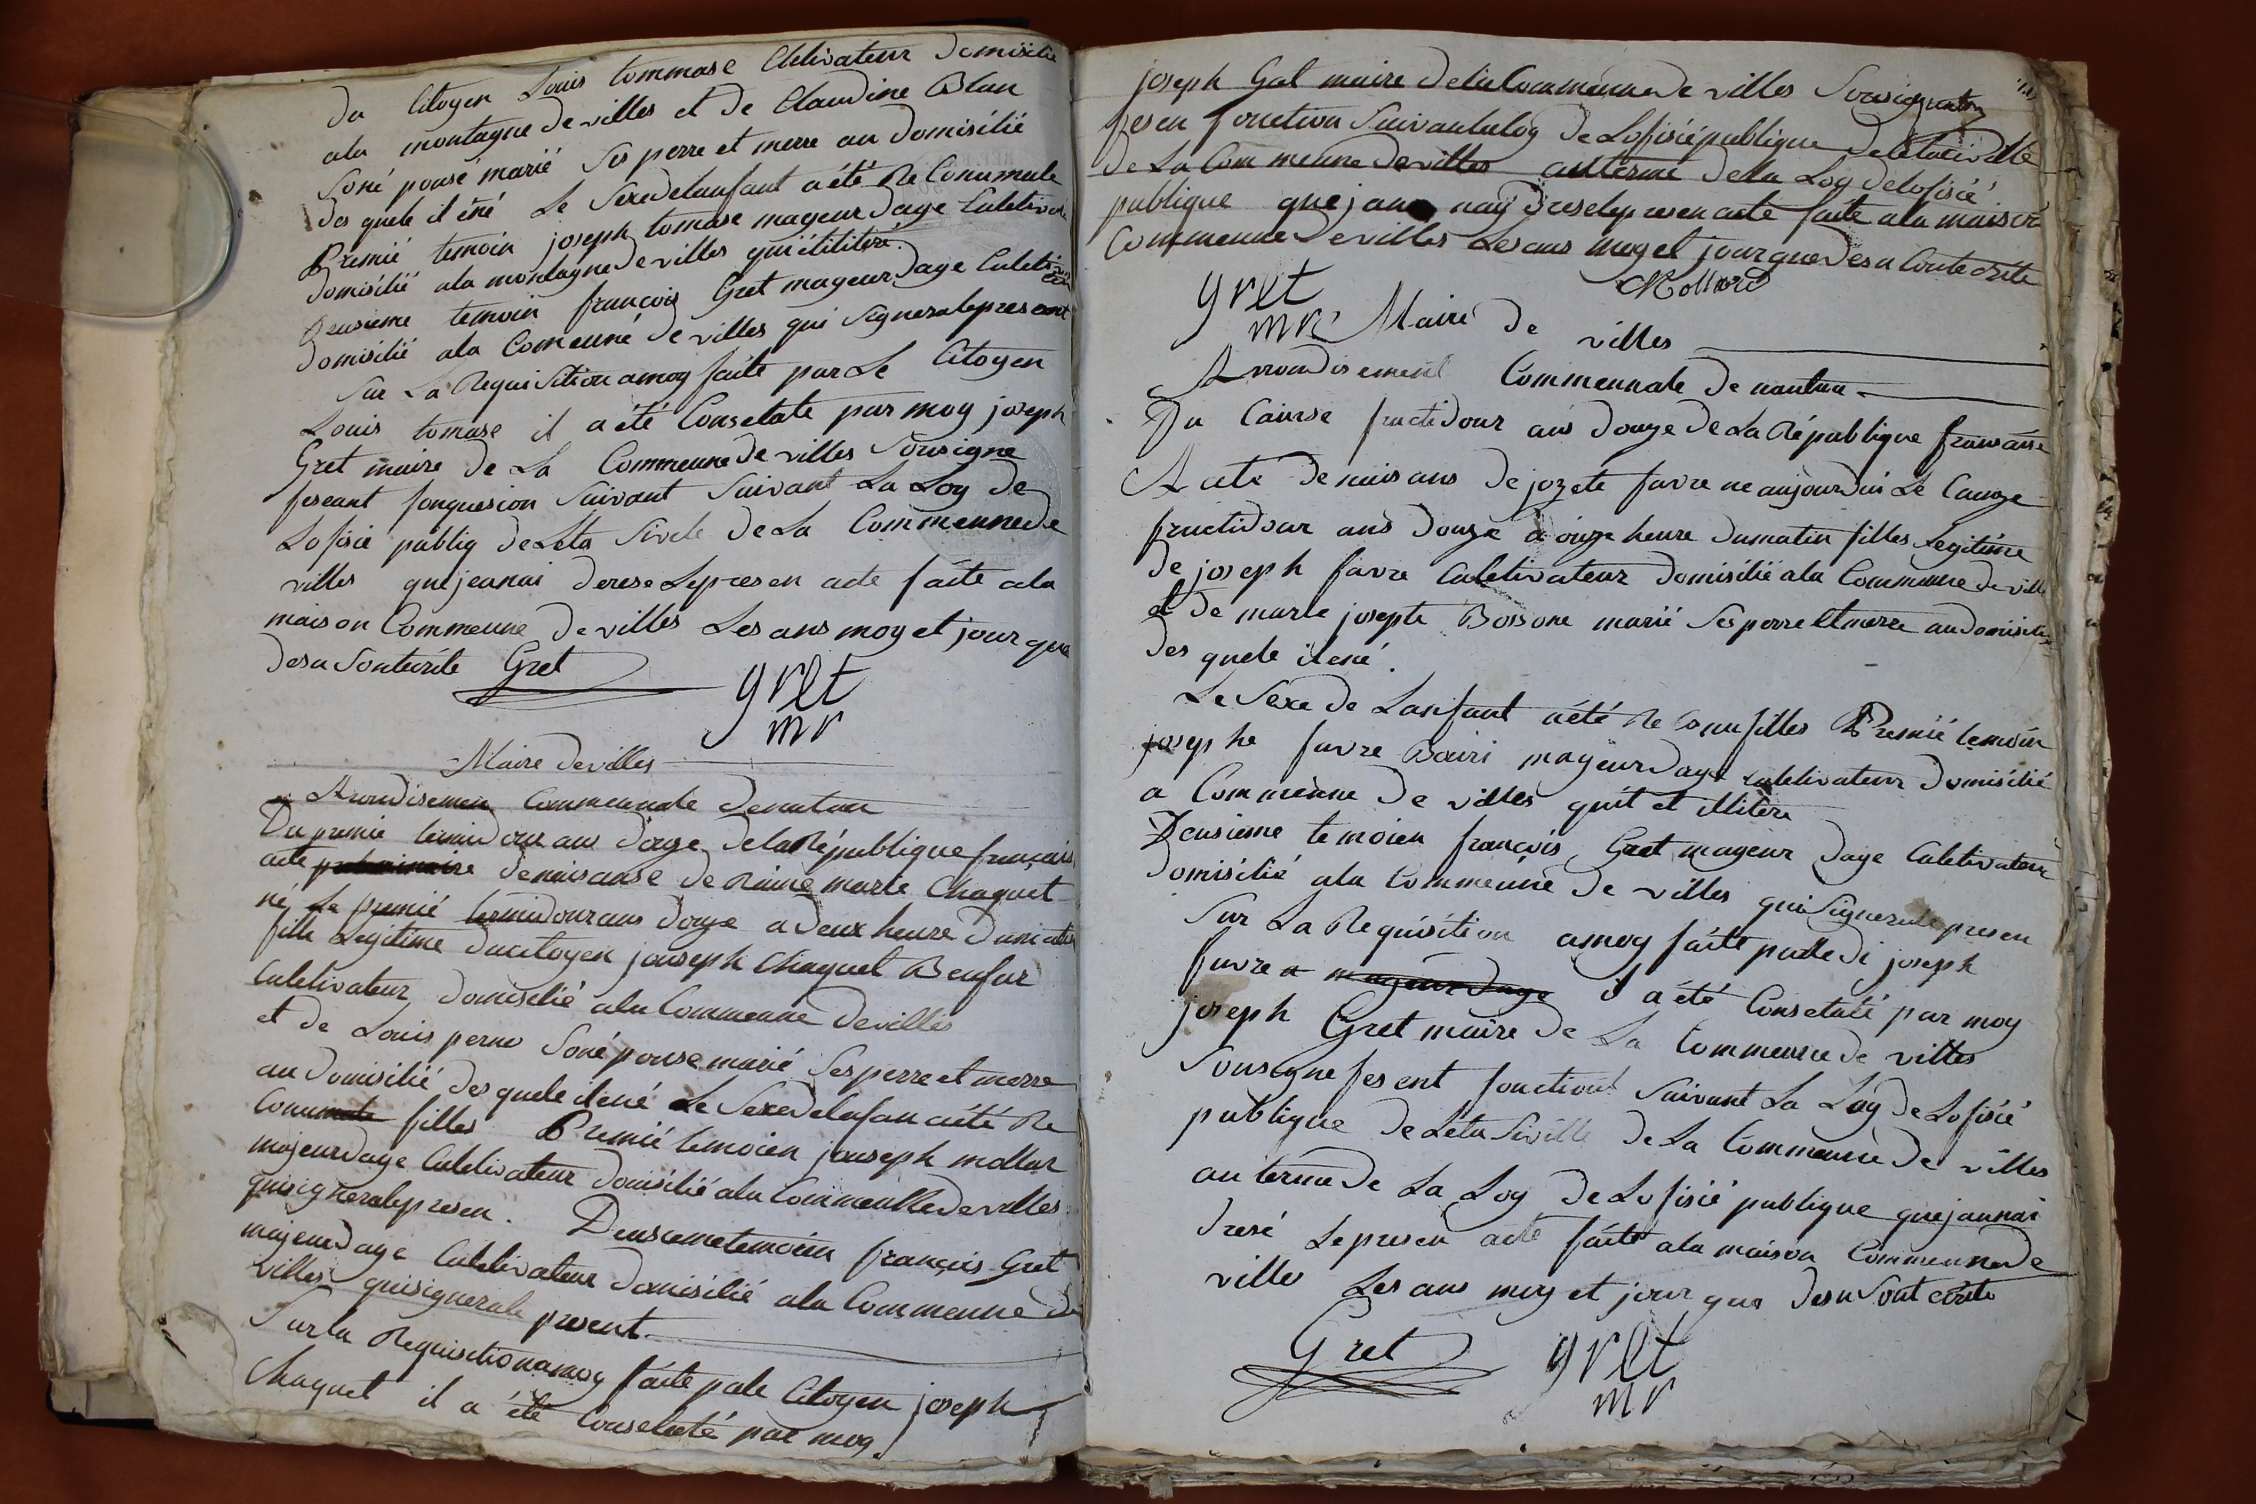 du Citoyen Louis tommase Cletivateur domisilié
ala montagne de villes et de Claudine Blan
Soné pousé marié Ses perre et merre au domisilié
des quele il éné Le Sexe delanfant a été Re Conu male
Premié temoin joseph tomase mageur dage Culetivateur
domisilié ala montagne de villes qui étilitéré.
Deusieme temoin françois Gret mageur dage Culetivateur
domisilié ala Comeuné de villes qui Signera le present
Sur La Requisition a moy faite par Le Citoyen
Louis tomase il a été Consetate par moy joseph
Gret maire de La Commeune de villes Sousigne
feseant fonquesion Suivant Suivant La Loy de
Lofisié publiq de Léta Sivele de La Commeune de
villes que jeanai derese Le presen acte faite ala
maison Commeune de villes Les ans moy et jour que
desu Sont écrite Gret
gret
mr
Maire de villes
Arondisemen Commeunale de nantua
Du premie termidour ans douze de la République français
acte de naisanse de Reine marie Chaquet
né Le premié termidour ans douze a deux heure du matin
fille Legitime du citoyen jouseph Chaquet Benfar
Culetivateur domisilié ala Commeune de villes
et de Louis perno Soné pouse marié Ses perre et merre
au domisilié des quele il ené Le Sexe delafan a été Re
Conu male filles Premié temoien jouseph mollar
majeur dage Culetivateur domisilié ala Commeune de villes
qui signera le presen. Deusieme temoien françois Gret
majeur dage Culetivateur domisilié ala Commeune de
villes qui signera le present
Sur la Requisition a moy faite pale Citoyen joseph
Chaquet il a été Consetaté par moy
joseph Gret maire de la Commeune de villes Sousigne
fesen fonction Suivant la loy de Lofisié publique de létat civille
de La Commeune de villes au terme della Loy de lofisié
publique que jan nay drese le presen acte faite ala maison
Commeune de villes Les ans moy et jour que desu Sont écrite
gret
mr Mollard
Maire de villes
Arrondisement Commeunale de nantua
Du Cainse fructidour ans douze de La République fransaise
Acte de naisans de jozete favre ne aujourdui Le Cainze
fructidour ans douze à onze heure du matin filles Legitime
de joseph favre Culetivateur domisilié ala Commeune de villes
et de marie josepte Bossone marié Ses perre et merre au domisilié
des quele il ené.
Le Sexe de Lanfant a été Re Conu filles Premié temoin
josephe favre Bairi mageur dage culetivateur domisilié
a Commeune de villes quit et illitéré
Deusieme temoien françois Gret mageur dage Culetivateur
domisilié ala Commeune de villes qui Signera le presen
Sur La Requisition a moy faite pa le di joseph
favre a mageur dage il a été Consetaté par moy
joseph Gret maire de La Commeune de villes
Sousigne fesent fonction Suivant La Loy de Lofisié
publique de Léta Siville de La Commeune de villes
au terme de La Loy de Lofisié publique que jannai
dresé Le presen acte faite ala maison Commeune de
villes Les ans moy et jour que desu Sont écrite
Gret gret
mr